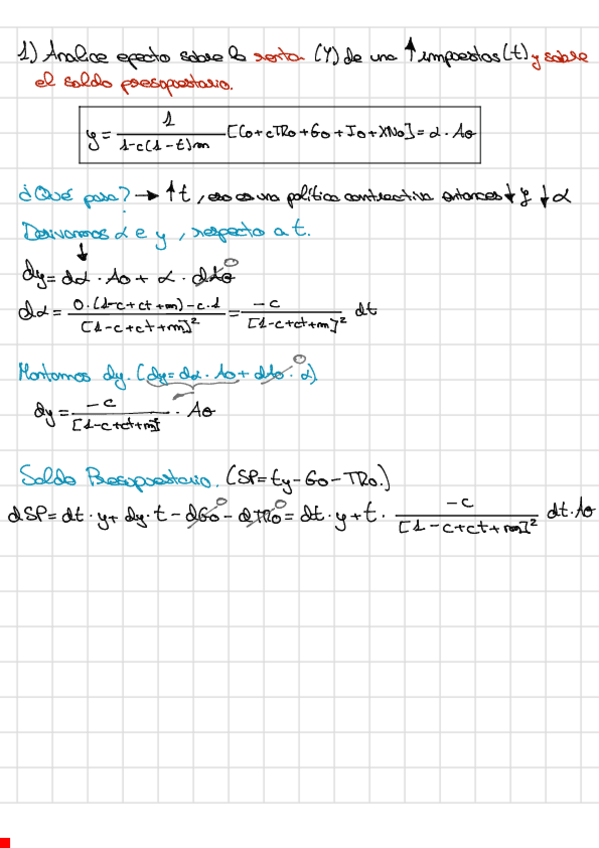 1) Analice efecto sobre la renta (Y) de una ↑ impuestos (t) y sobre
el saldo presupostario.
y = 1 / 1-c(1-t)m [Co+cTRo+Go+Io+XNo] = α · Ao
¿Qué pasa? → ↑t, eso es una política contractiva entonces ↓ y ↓ α
Derivamos α e y, respecto a t.
↓
dy = dα · Ao + α · dAo 0
dα = 0·(1-c+ct+m)-c·1 / [1-c+ct+m]² = -c / [1-c+ct+m]² dt
Montamos dy. (dy = dα · Ao + dAo 0 · α)
dy = -c / [1-c+ct+m]² · Ao
Saldo Presupuestario. (SP = ty - Go - TRo.)
dSP = dt · y + dy · t - dGo 0 - dTRo 0 = dt · y + t · -c / [1-c+ct+m]² dt · Ao